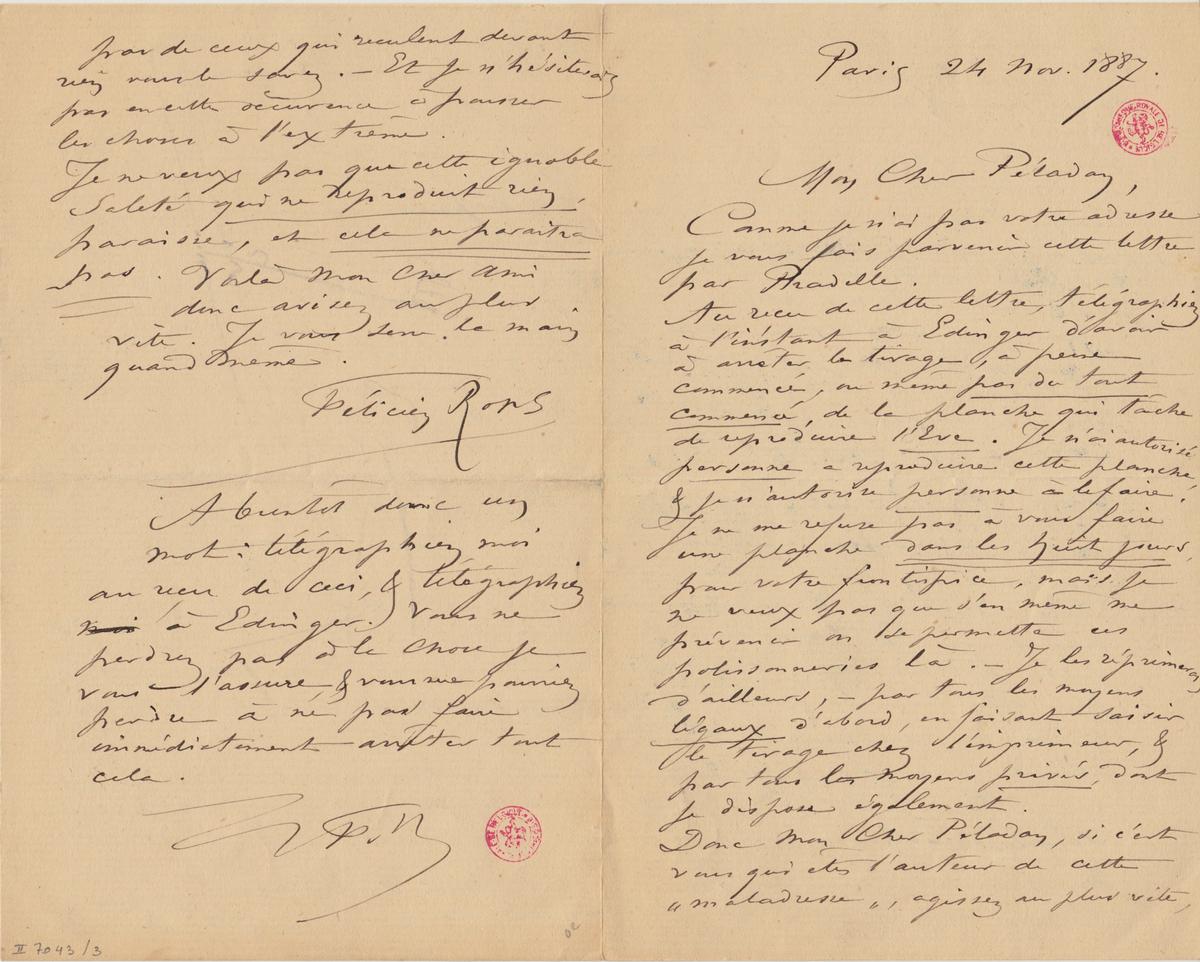 Paris 24 Nov. 1887.
Mon Cher Péladan,
Comme je n'ai pas votre adresse
je vous fais parvenir cette lettre
par Pradelle.
Au recu de cette lettre, télégraphiez
à l'instant à Edinger d'avoir
à arrêter le tirage, à peine
commencé, ou même pas du tout
commencé, de la planche qui tâche
de reproduire l'Eve. Je n'ai autorisé
personne a reproduire cette planche,
& je n'autorise personne à le faire.
Je ne me refuse pas à vous faire
une planche dans les huit jours,
pour votre frontispice, mais je
ne veux pas que s'en même me
prévenir on se permette ces
polissonneries là. – Je les réprimerai
d'ailleurs, – par tous les moyens
légaux d'abord, en faisant saisir
le tirage chez l'imprimeur, &
par tous les moyens privés, dont
je dispose également.
Donc Mon Cher Péladan, si c'est
vous qui êtes l'auteur de cette
„maladresse„, agissez au plus vite,
pas de ceux qui reculent devant
rien vous le savez. – Et je n'hésiterai
pas en cette occurence à pousser
les choses à l'extrême.
Je ne veux pas que cette ignoble
Saleté qui ne reproduit rien,
paraisse, et cela ne paraîtra
pas. Voilà Mon Cher Ami
donc avisez au plus
vite. Je vous serre la main
quand même.
Félicien Rops
A bientôt donc un
mot: télégraphiez moi
au recu de ceci, & télégraphiez
moi à Edinger. Vous ne
perdrez pas à la chose je
vous l'assure, & vous me pourriez
perdre à ne pas faire
immédiatement arrêter tout
cela.
II 7043/3